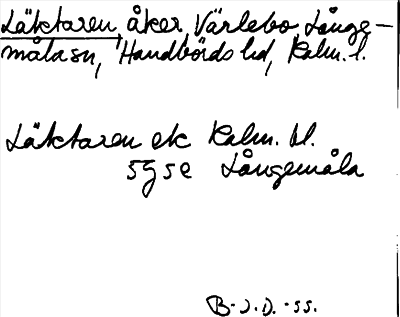 Läktaren, åker, Värlebo, Långe-
måla sn, Handbörds hd, Kalm. l.
Läktaren ek Kalm. bl.
5g5e Långemåla
B-J.D. -55.